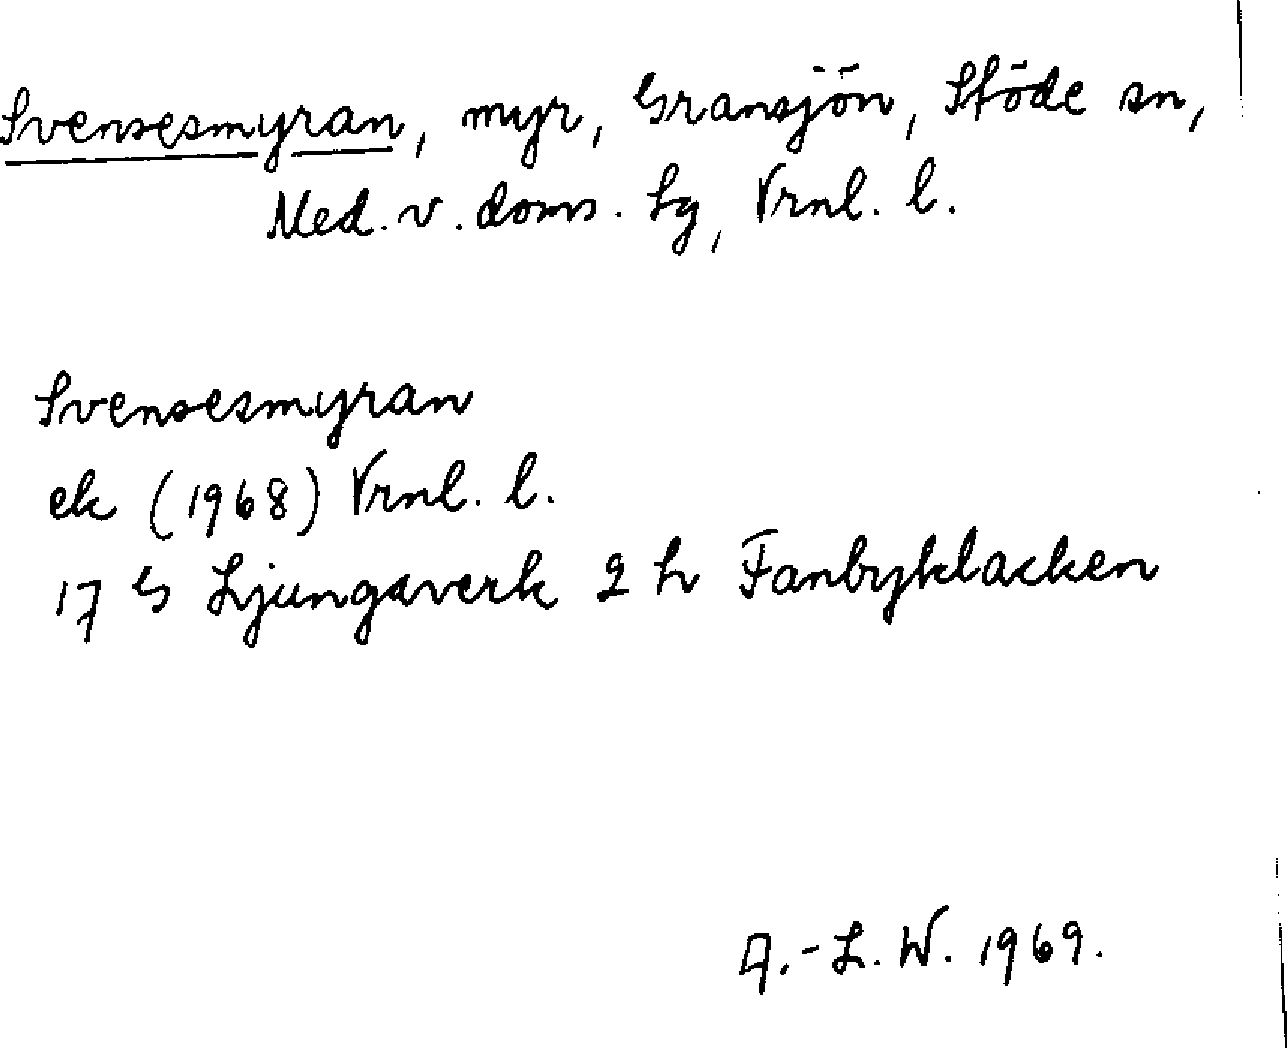 Svensesmyran, myr, Gransjön, Stöde sn,
Med. v. doms. lg, Vrnl. l.
Svensesmyran
ek (1968) Vrnl. l.
17 G Ljungaverk 2 h Fanbyklacken
A.-L. W. 1969.